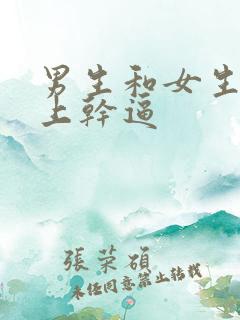 男生和女生
上幹逼
張荣碩
未经同意禁止转载